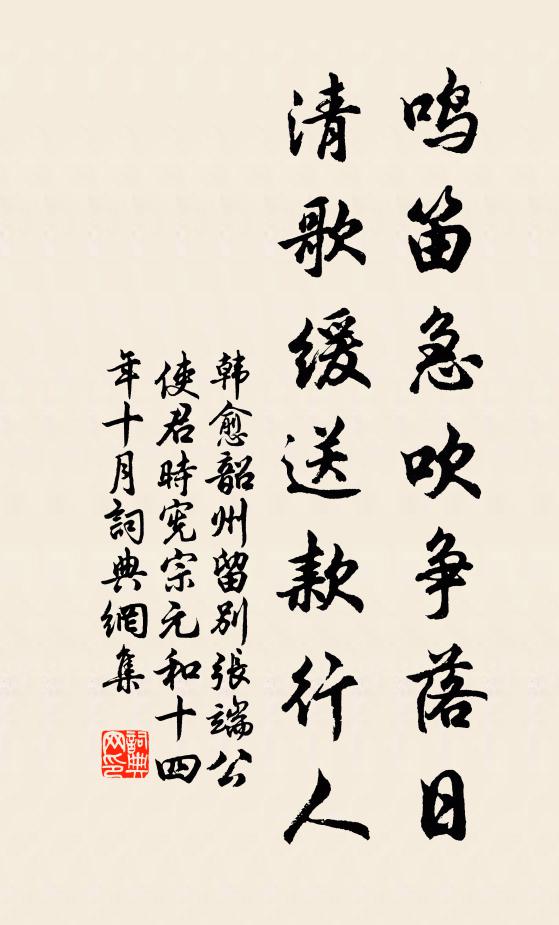 鸣笛急吹争落日
清歌缓送款行人
韩愈韶州留别張端公
使君時宪宗元和十四
年十月詞典網集
詞典
网印